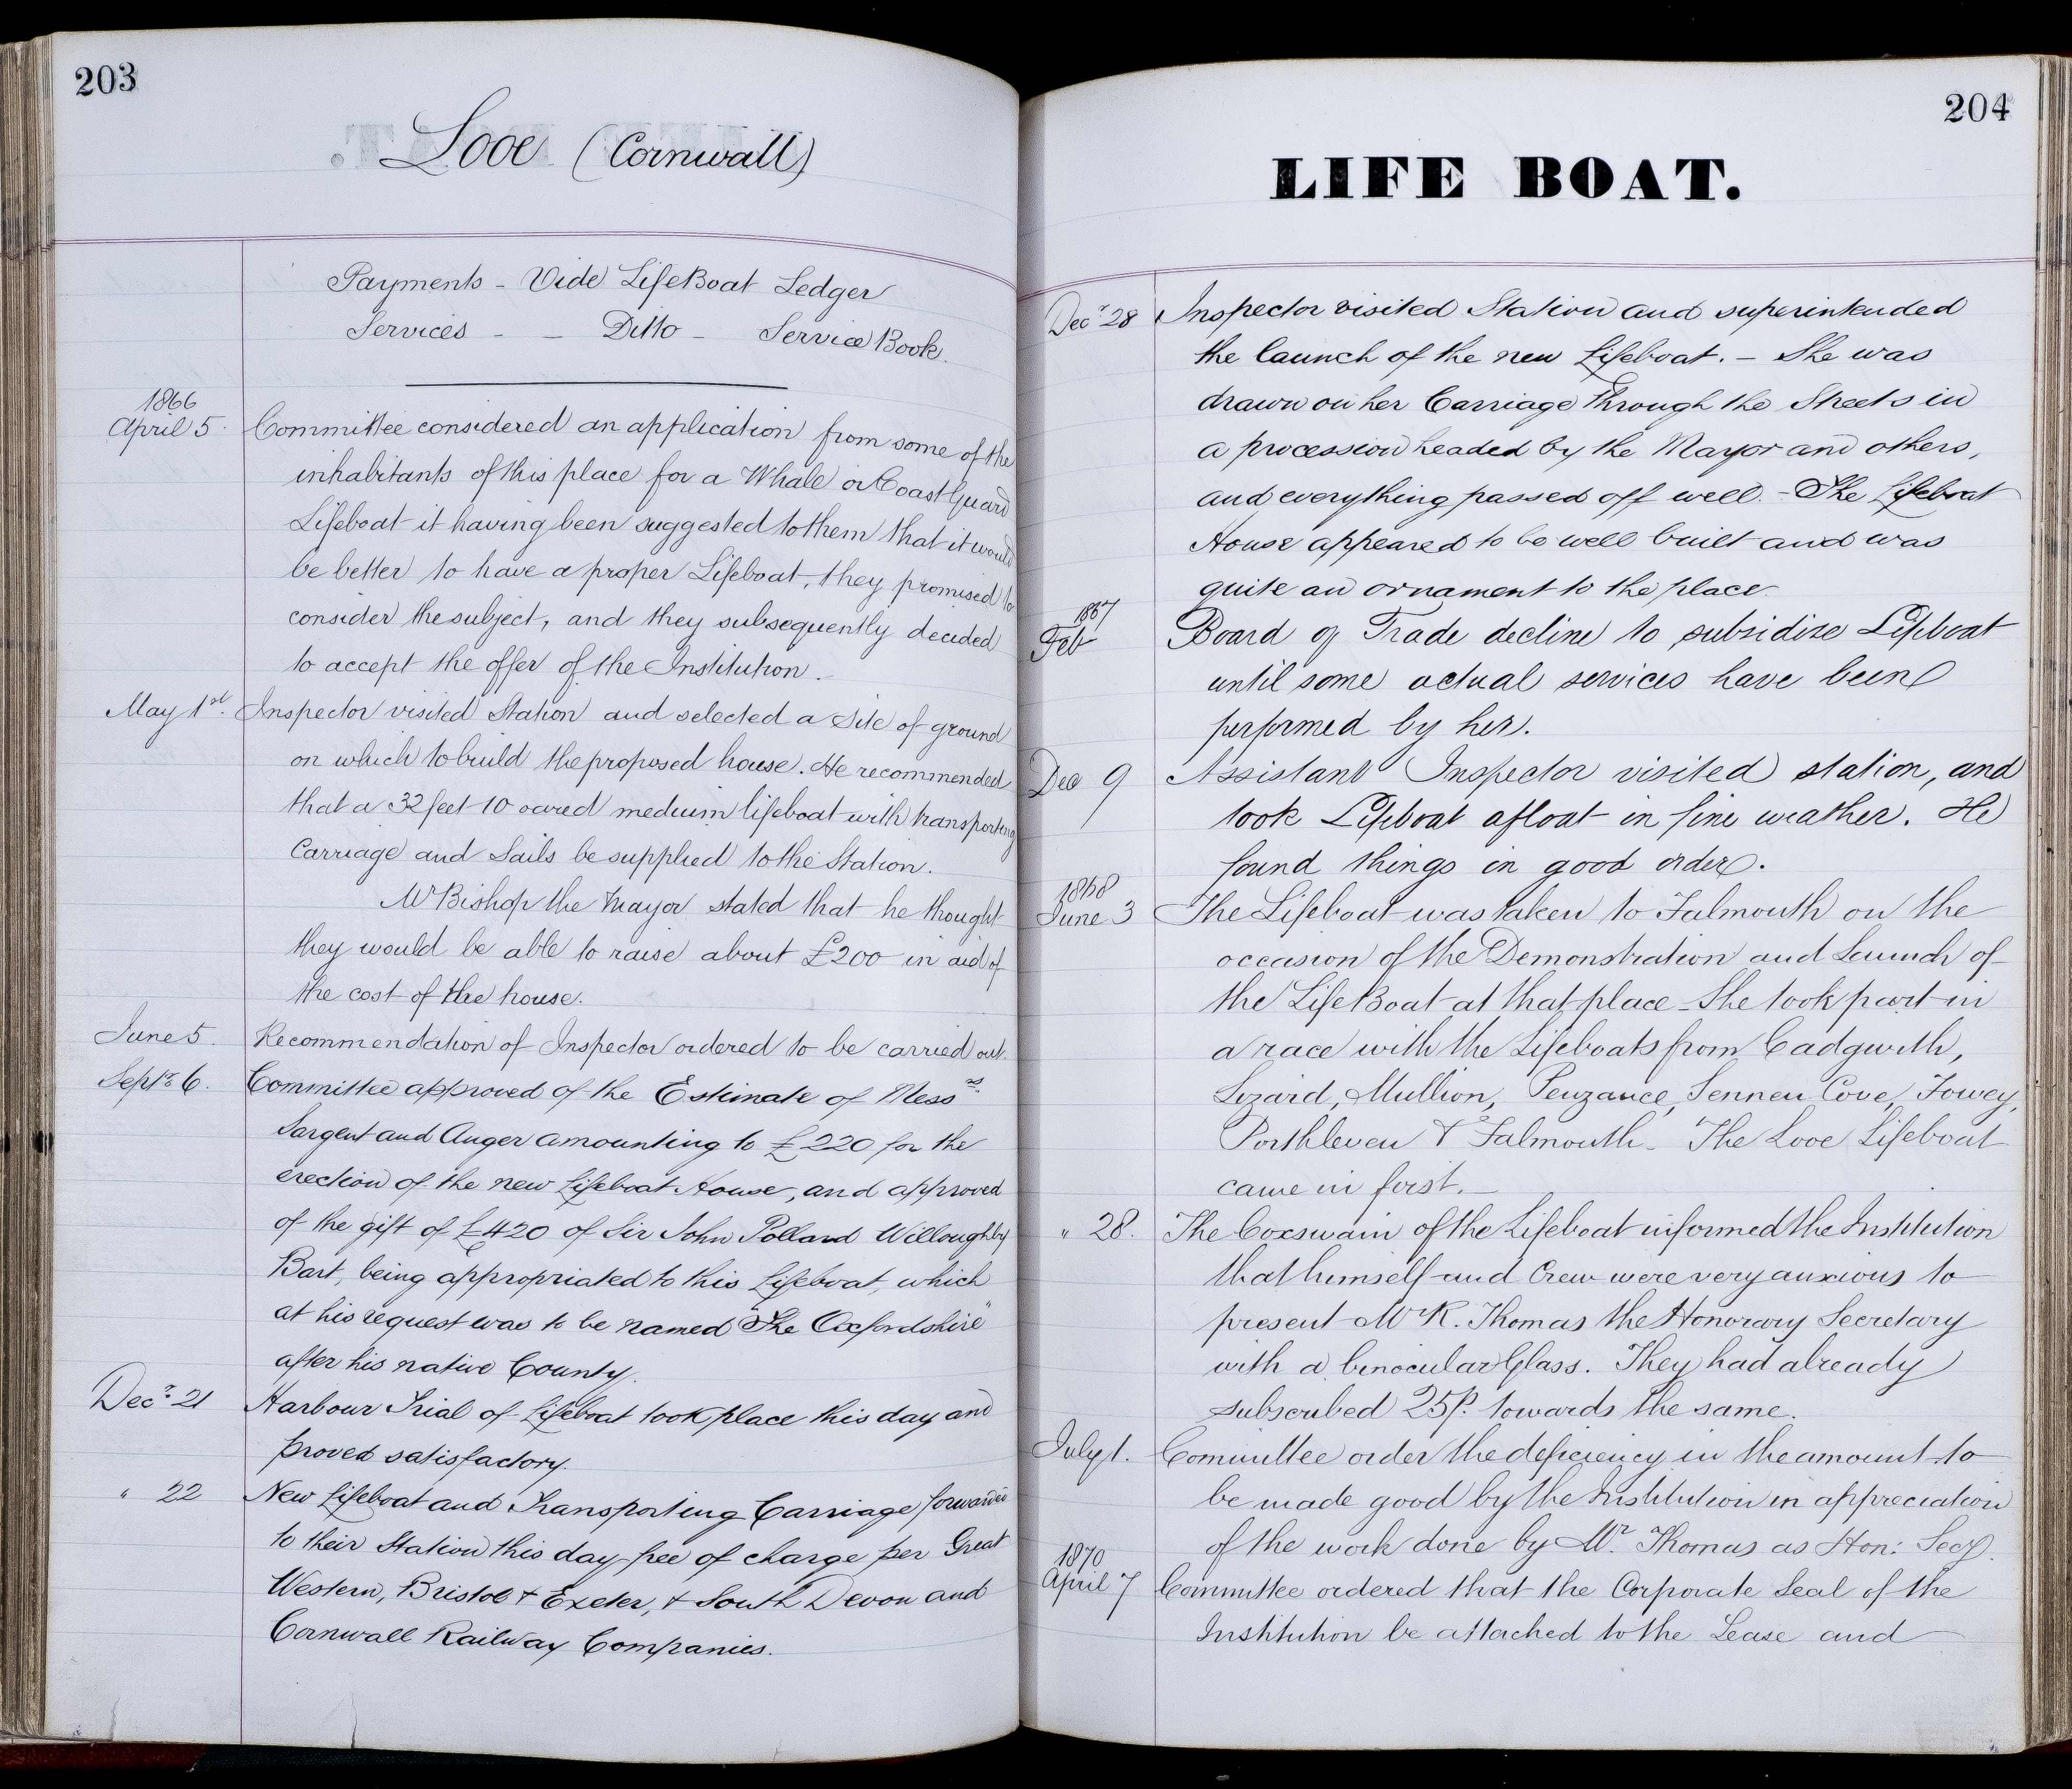 203
Looe (Cornwall)
Payments - Vide LifeBoat Ledger
Services - - Ditto - Service Book.
1866
April 5. Committee considered an application from some of the
inhabitants of this place for a Whale or Coast Guard
Lifeboat it having been suggested to them that it would
be better to have a proper Lifeboat, they promised to
consider the subject, and they subsequently decided
to accept the offer of the Institution.
May 1st. Inspector visited Station and selected a Site of ground
on which to build the proposed house. He recommended
that a 32 feet 10 oared medium lifeboat with transporting
Carriage and Sails be supplied to the Station.
Mr Bishop the Mayor stated that he thought
they would be able to raise about £200 in aid of
the cost of the house.
June 5. Recommendation of Inspector ordered to be carried out.
Septr 6. Committee approved of the Estimate of Messrs
Sargent and Auger amounting to £220 for the
erection of the new Lifeboat House, and approved
of the gift of £420 of Sir John Pollard Willoughby
Bart, being appropriated to this Lifeboat, which
at his request was to be named "The Oxfordshire"
after his native County.
Decr 21 Harbour Trial of Lifeboat took place this day and
proved satisfactory.
" 22 New Lifeboat and Transporting Carriage forwarded
to their Station this day free of charge per Great
Western, Bristol & Exeter, & South Devon and
Cornwall Railway Companies.
204
LIFE BOAT.
Decr 28 Inspector visited Station and superintended
the launch of the new Lifeboat. - She was
drawn on her Carriage through the Streets in
a procession headed by the Mayor and others,
and everything passed off well. - The Lifeboat
House appeared to be well built and was
quite an ornament to the place.
1867
Feb Board of Trade decline to subsidize Lifeboat
until some actual services have been
performed by her.
Dec 9 Assistant Inspector visited station, and
took Lifeboat afloat in fine weather. He
found things in good order.
1868
June 3 The Lifeboat was taken to Falmouth on the
occasion of the Demonstration and Launch of
the LifeBoat at that place - She took part in
a race with the Lifeboats from Cadgwith,
Lizard, Mullion, Penzance, Sennen Cove, Fowey,
Porthleven & Falmouth. The Looe Lifeboat
came in first. -
" 28. The Coxswain of the Lifeboat informed the Institution
that himself and Crew were very anxious to
present Mr R. Thomas the Honorary Secretary
with a binocular Glass. They had already
subscribed 25/. towards the same.
July 1. Committee order the deficiency in the amount to
be made good by the Institution in appreciation
of the work done by Mr. Thomas as Hon: Secy.
1870
April 7 Committee ordered that the Corporate Seal of the
Institution be attached to the Lease and